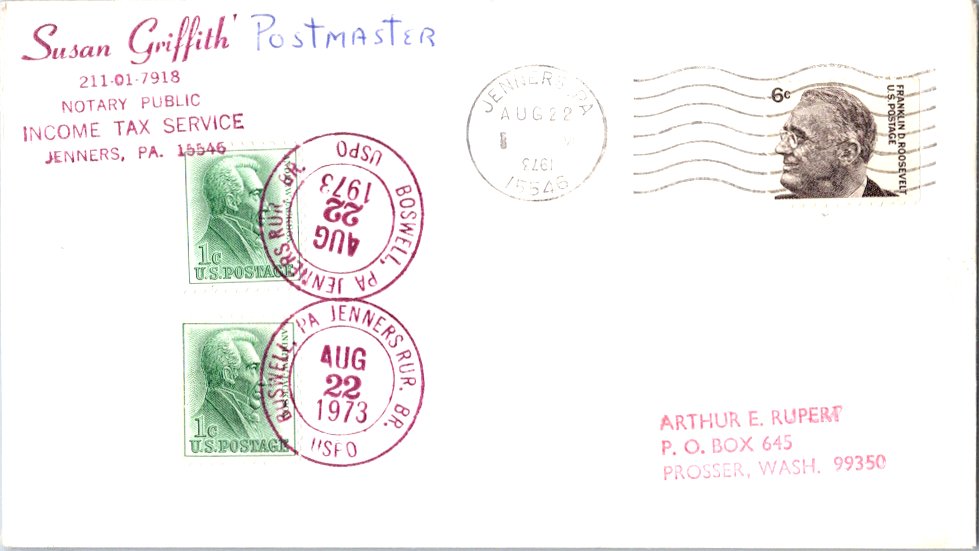 Susan Griffith' POSTMASTER
211-01-7918
NOTARY PUBLIC
INCOME TAX SERVICE
JENNERS, PA. 15546
JENNERS, PA
AUG 22
1973
15546
6c
FRANKLIN D. ROOSEVELT
U.S. POSTAGE
1c
U.S. POSTAGE
BOSWELL, PA JENNERS RUR. BR.
AUG
22
1973
USPO
1c
U.S. POSTAGE
BOSWELL, PA JENNERS RUR. BR.
AUG
22
1973
USPO
ARTHUR E. RUPERT
P. O. BOX 645
PROSSER, WASH. 99350